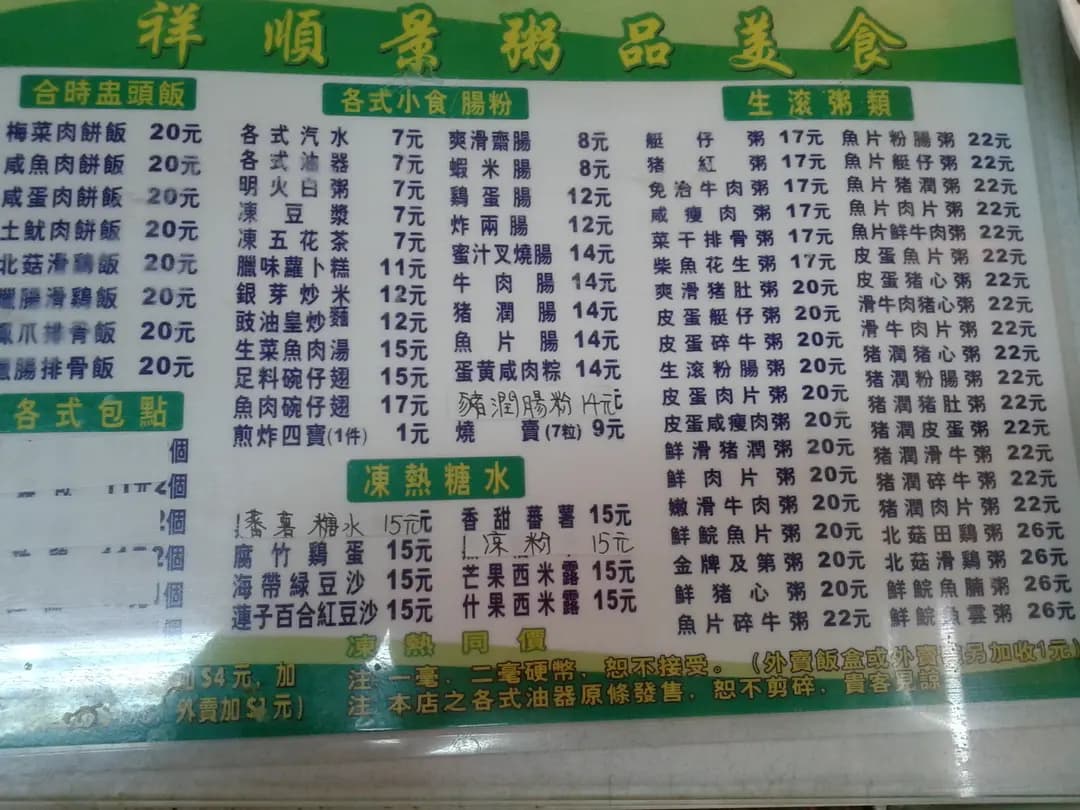 祥順景粥品美食
合時盅頭飯
梅菜肉餅飯 20元
咸魚肉餅飯 20元
咸蛋肉餅飯 20元
土魷肉餅飯 20元
北菇滑鷄飯 20元
腸滑鷄飯 20元
爪排骨飯 20元
腸排骨飯 20元
各式包點
個
個
2個
2個
個
個
各式小食 腸粉
各式汽水 7元
各式油器 7元
明火白粥 7元
凍豆漿 7元
凍五花茶 7元
臘味蘿卜糕 11元
銀芽炒米 12元
豉油皇炒麵 12元
生菜魚肉湯 15元
足料碗仔翅 15元
魚肉碗仔翅 17元
煎炸四寶(1件) 1元
爽滑齋腸 8元
蝦米腸 8元
鷄蛋腸 12元
炸兩腸 12元
蜜汁叉燒腸 14元
牛肉腸 14元
猪潤腸 14元
魚片腸 14元
蛋黃咸肉粽 14元
豬潤腸粉 14元
燒賣(7粒) 9元
凍熱糖水
蕃薯糖水 15元
腐竹鷄蛋 15元
海帶綠豆沙 15元
蓮子百合紅豆沙 15元
香甜蕃薯 15元
涼粉 15元
芒果西米露 15元
什果西米露 15元
凍熱同價
生滚粥類
艇仔粥 17元
猪紅粥 17元
免治牛肉粥 17元
咸瘦肉粥 17元
菜干排骨粥 17元
柴魚花生粥 17元
爽滑猪肚粥 20元
皮蛋艇仔粥 20元
皮蛋碎牛粥 20元
生滚粉腸粥 20元
皮蛋肉片粥 20元
皮蛋咸瘦肉粥 20元
鮮滑猪潤粥 20元
鮮肉片粥 20元
嫩滑牛肉粥 20元
鮮鯇魚片粥 20元
金牌及第粥 20元
鮮猪心粥 20元
魚片碎牛粥 22元
魚片粉腸粥 22元
魚片艇仔粥 22元
魚片猪潤粥 22元
魚片肉片粥 22元
魚片鮮牛肉粥 22元
皮蛋魚片粥 22元
皮蛋猪心粥 22元
滑牛肉猪心粥 22元
滑牛肉片粥 22元
猪潤猪心粥 22元
猪潤粉腸粥 22元
猪潤猪肚粥 22元
猪潤皮蛋粥 22元
猪潤滑牛粥 22元
猪潤碎牛粥 22元
猪潤肉片粥 22元
北菇田鷄粥 26元
北菇滑鷄粥 26元
鮮鯇魚腩粥 26元
鮮鯇魚雲粥 26元
加$4元，加
外賣加$1元)
注：一毫，二毫硬幣，恕不接受。(外賣飯盒或外賣 另加收1元)
注：本店之各式油器原條發售，恕不剪碎，貴客見諒